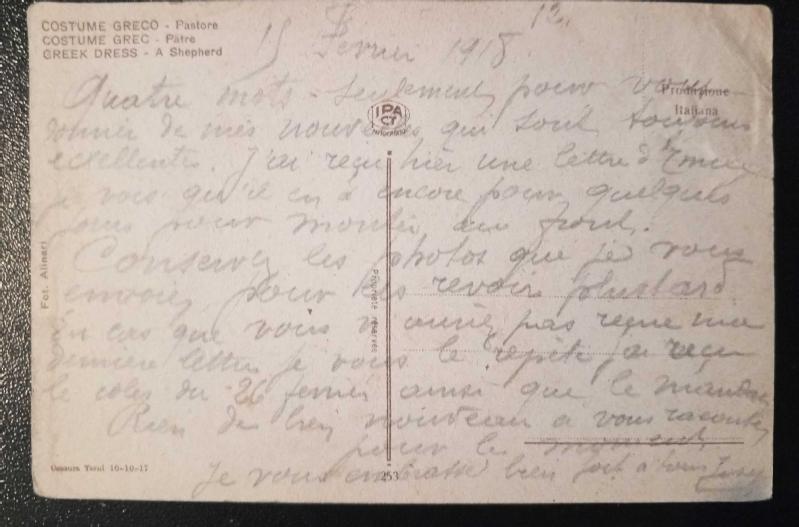 COSTUME GRECO - Pastore
COSTUME GREC - Pâtre
GREEK DRESS - A Shepherd
12.
15 Fevrier 1918
Quatre mots - seulement pour vous
Produzione
Italiana
IPA CT
donner de mes nouvelles qui sont toujours
excellentes. J'ai reçu hier une lettre
je vois qu'il en a encore pour quelques
jours pour monter au front.
Conservez les photos que je vous
envoie, pour les revoir plus tard.
En cas que vous n'auriez pas reçue ma
derniere lettre je vous le répète, j'ai reçu
le colis du 26 fevrier ainsi que le mandat
Rien de bien nouveau a vous raconter
pour le moment
Je vous embrasse bien fort à tous
Fot. Alinari
Proprietà riservata
Censura Terni 10-10-17
253